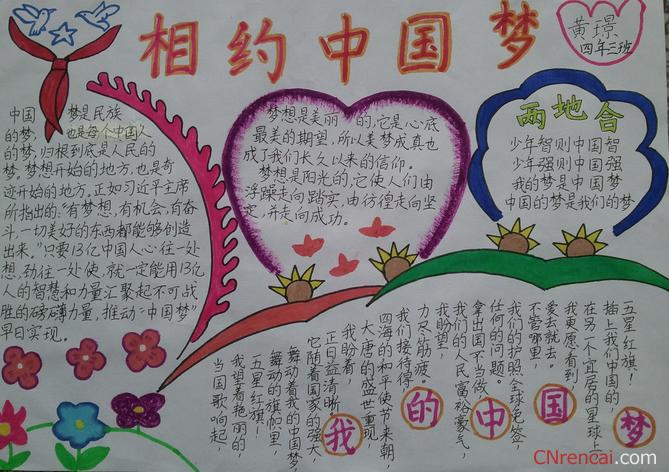 相约中国梦
黄璟
四年三班
中国 梦是民族
的梦，也是每个中国人
的梦，归根到底是人民的
梦。梦想开始的地方，也是奇
迹开始的地方。正如习近平主席
所指出的：“有梦想，有机会，有奋
斗，一切美好的东西都能够创造
出来。”只要13亿中国人心往一处
想，劲往一处使，就一定能用13亿
人的智慧和力量汇聚起不可战
胜的磅礴力量，推动“中国梦”
早日实现。
梦想是美丽的，它是心底
最美的期望，所以美梦成真也
成了我们长久以来的信仰。
梦想是阳光的，它使人们由
浮躁走向踏实，由彷徨走向坚
定，并走向成功。
两地合
少年智则中国智
少年强则中国强
我的梦是中国梦
中国的梦是我们的梦
我的中国梦
当国歌响起，
我望着艳丽的，
五星红旗！
舞动的旗帜里，
舞动着我的中国梦，
它随着国家的强大
正日益清晰，
我盼着，
大唐的盛世重现，
四海的和平使节来朝，
我们接待得
力尽筋疲。
我盼望，
我们的人民富裕豪气，
拿出国不当做
任何的问题。
我们的护照全球免签，
不管哪里，
爱去就去。
我更愿看到
在另一个宜居的星球上
插上我们中国的，
五星红旗！
CNrencai.com